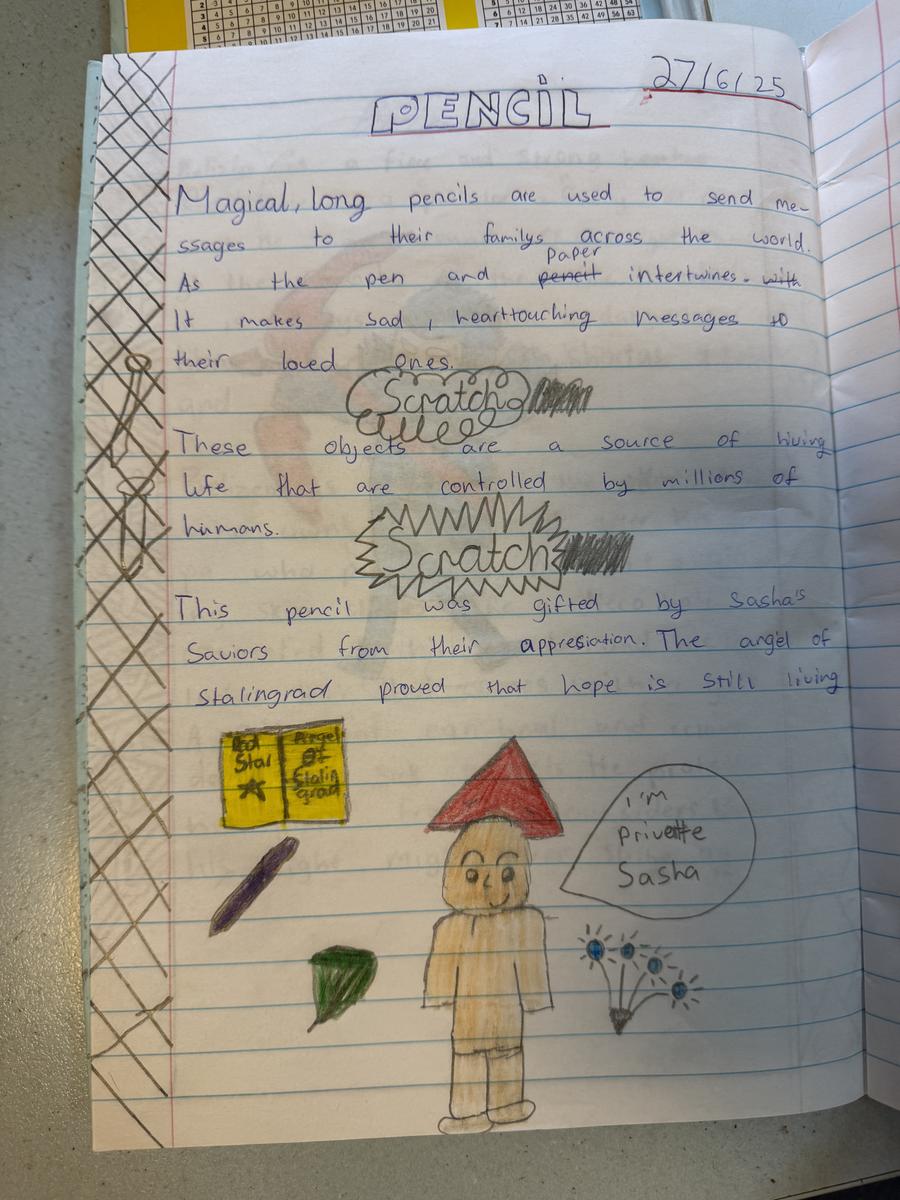 27/6/25
PENCIL
Magical, long pencils are used to send me-
ssages to their familys across the world.
paper
As the pen and pencil intertwines. with
It makes sad, hearttouching messages to
their loved ones.
Scratch
These objects are a source of living
life that are controlled by millions of
humans.
Scratch
This pencil was gifted by Sasha's
Saviors from their appresiation. The angel of
Stalingrad proved that hope is still living
Red
Star
Angel
Of
Stalin
grad
I'm
Privette
Sasha